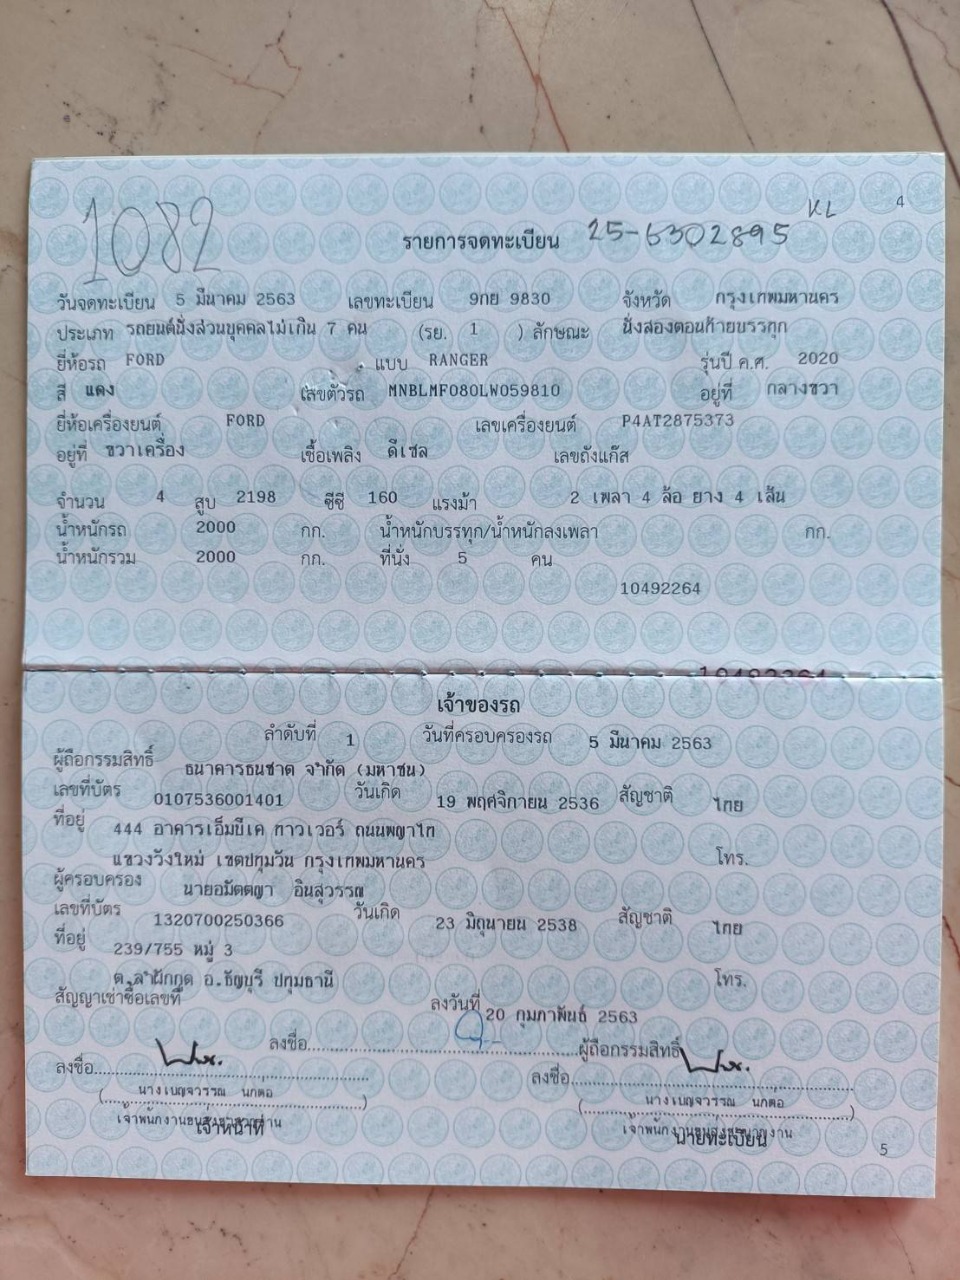 1082
KL 4
รายการจดทะเบียน 25-6302895
วันจดทะเบียน 5 มีนาคม 2563 เลขทะเบียน 9กย 9830 จังหวัด กรุงเทพมหานคร
ประเภท รถยนต์นั่งส่วนบุคคลไม่เกิน 7 คน (รย. 1 ) ลักษณะ นั่งสองตอนท้ายบรรทุก
ยี่ห้อรถ FORD แบบ RANGER รุ่นปี ค.ศ. 2020
สี แดง เลขตัวรถ MNBLMF080LW059810 อยู่ที่ กลางขวา
ยี่ห้อเครื่องยนต์ FORD เลขเครื่องยนต์ P4AT2875373
อยู่ที่ ขวาเครื่อง เชื้อเพลิง ดีเซล เลขถังแก๊ส
จำนวน 4 สูบ 2198 ซีซี 160 แรงม้า 2 เพลา 4 ล้อ ยาง 4 เส้น
น้ำหนักรถ 2000 กก. น้ำหนักบรรทุก/น้ำหนักลงเพลา กก.
น้ำหนักรวม 2000 กก. ที่นั่ง 5 คน
10492264
10492264
เจ้าของรถ
ลำดับที่ 1 วันที่ครอบครองรถ 5 มีนาคม 2563
ผู้ถือกรรมสิทธิ์ ธนาคารธนชาต จำกัด (มหาชน)
เลขที่บัตร 0107536001401 วันเกิด 19 พฤศจิกายน 2536 สัญชาติ ไทย
ที่อยู่ 444 อาคารเอ็มบีเค ทาวเวอร์ ถนนพญาไท
แขวงวังใหม่ เขตปทุมวัน กรุงเทพมหานคร โทร.
ผู้ครอบครอง นายอมัตตญา อินสุวรรณ
เลขที่บัตร 1320700250366 วันเกิด 23 มิถุนายน 2538 สัญชาติ ไทย
ที่อยู่ 239/755 หมู่ 3
ต.ลำผักกูด อ.ธัญบุรี ปทุมธานี โทร.
สัญญาเช่าซื้อเลขที่ ลงวันที่ 20 กุมภาพันธ์ 2563
ลงชื่อ ผู้ถือกรรมสิทธิ์
ลงชื่อ ลงชื่อ
(นางเบญจวรรณ นกต่อ) (นางเบญจวรรณ นกต่อ)
เจ้าพนักงานขนส่งชำนาญงาน เจ้าพนักงานขนส่งชำนาญงาน
เจ้าหน้าที่ นายทะเบียน
5